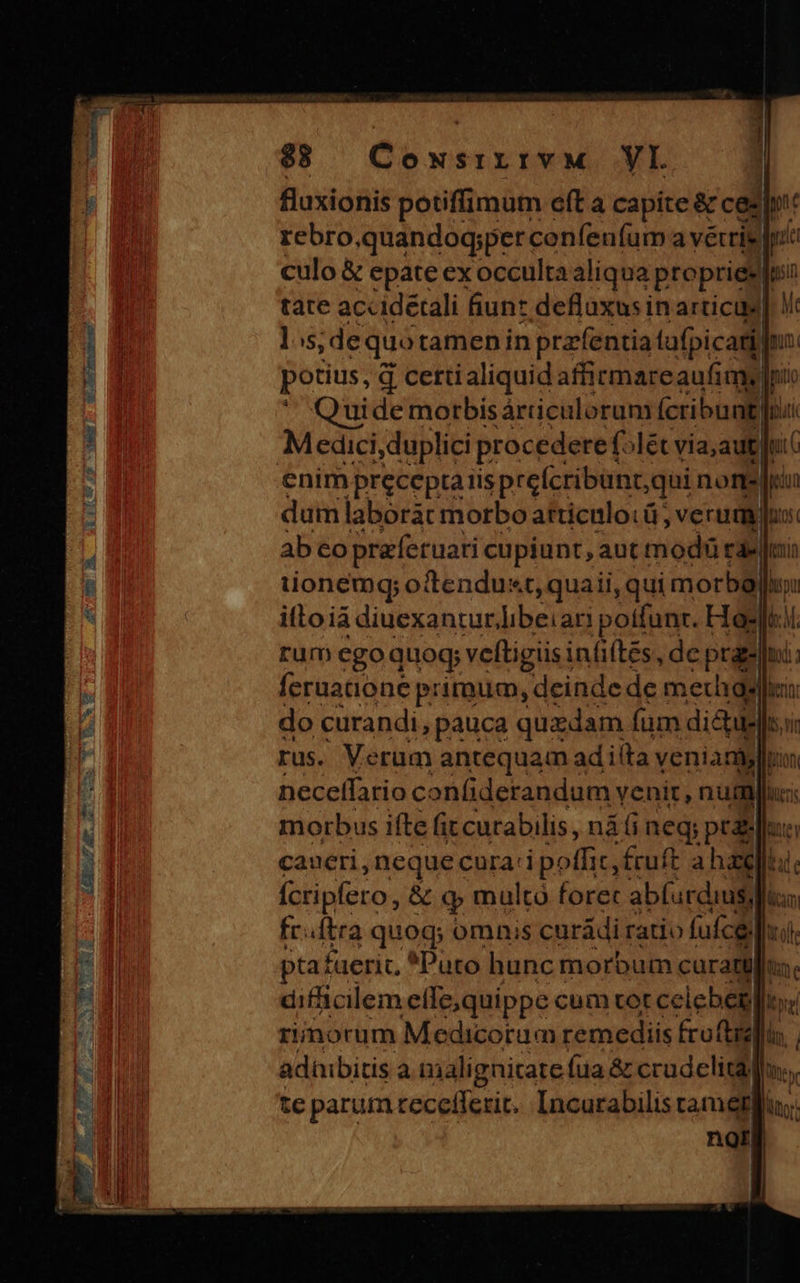 88 CONSILIVM VI.
fluxionis potissimum est a capite & ce-
rebro, quandoq; per consensum a vētris
culo & epate ex occulta aliqua proprie-
tate accidētali fiunt defluxus in articu-
los; de quo tamen in præsentia suspicari
potius, q̃ certi aliquid affirmare ausim.
Qui de morbis articulorum scribunt
Medici, duplici procedere solēt via, aut
enim precepta iis prescribunt, qui non-
dum laborāt morbo articulorū, verum
ab eo præseruari cupiunt, aut modū ra-
tionemq; ostendunt, qua ii, qui morbo
isto iā diuexantur, liberari possunt. Ho-
rum ego quoq; vestigiis insistēs, de præ-
seruatione primum, deinde de metho-
do curandi, pauca quædam sum dictu-
rus. Verum antequam ad ista veniam,
necessario considerandum venit, num
morbus iste sit curabilis, nā si neq; præ-
caueri, neque curari possit, frust a hæc
scripsero, & q; multo foret absurdius,
frustra quoq; omnis curādi ratio susce-
pta fuerit. *Puto hunc morbum curatu
difficilem esse, quippe cum tot celeber-
rimorum Medicorum remediis frustra
adhibitis a malignitate sua & crudelita-
te parum recesserit. Incurabilis tamen
non